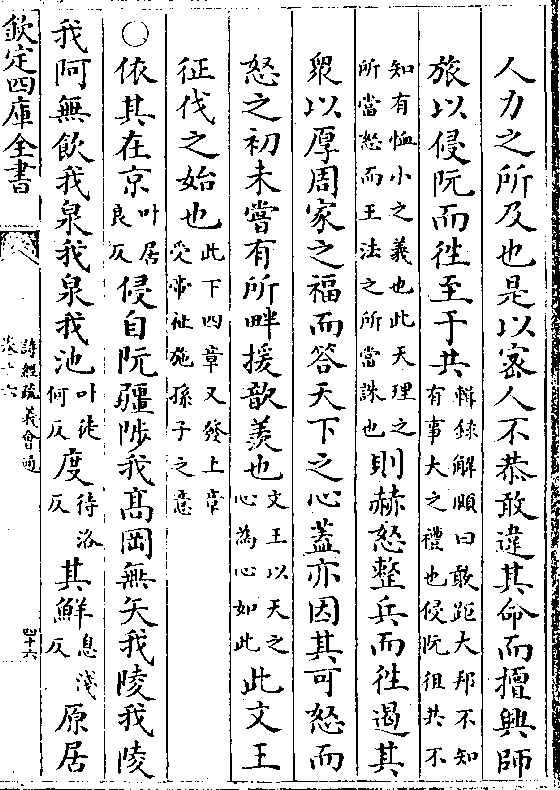 人力之所及也是以密人不恭敢違其命而擅興師
旅以侵阮而徃至于共輯錄解頤曰敢距大邦不知有事大之禮也侵阮徂共不
知有恤小之義也此天理之所當怒而王法之所當誅也則赫怒整兵而徃遏其
衆以厚周家之福而答天下之心蓋亦因其可怒而
怒之初未嘗有所畔援歆羡也文王以天之心為心如此此文王
征伐之始也此下四章又發上章受帝祉施孫子之意
○依其在京叶居良反侵自阮疆陟我髙岡無矢我陵我陵
我阿無飲我泉我泉我池叶徒何反度待洛反其鮮息淺反原居
欽定四庫全書
詩經疏義會通
卷十六
四十六